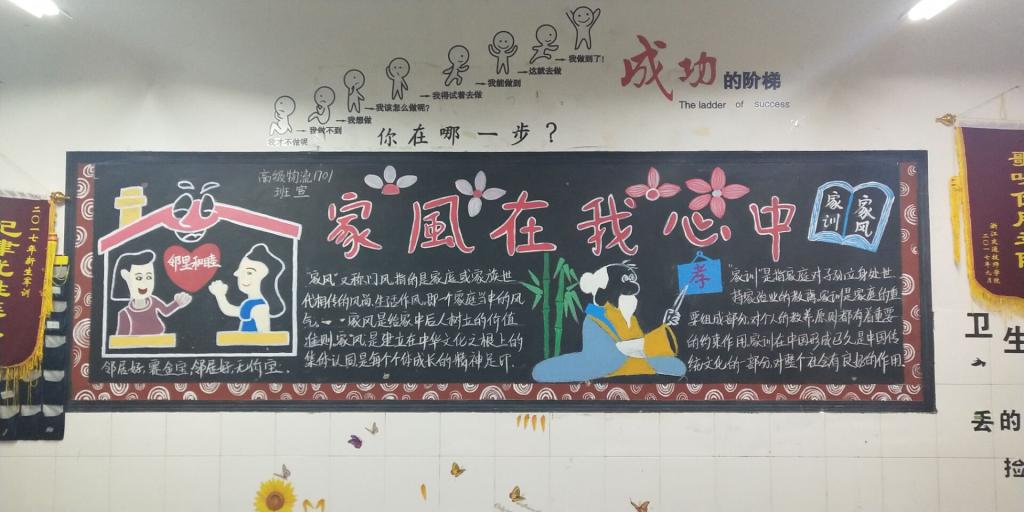 成功的阶梯
The ladder of success
我才不做呢
我做不到
我想做
我该怎么做呢?
我得试着去做
我能做到
这就去做
我做到了!
你在哪一步?
高级物流1701
班宣
家風在我心中
家训
家风
邻里和睦
邻居好,赛金宝,邻居好,无价宝.
"家风"又称门风,指的是家庭或家族世
代相传的风尚,生活作风,即一个家庭当中的风
气.家风是给家中后人树立的价值
准则,家风是建立在中华文化之根上的
集体认同,是每个个体成长的精神足印.
孝
"家训"是指家庭对子孙立身处世
持家治业的教诲,家训是家庭的重
要组成部分,对个人的教养,原则都有着重要
的约束作用.家训在中国形成已久,是中国传
统文化的一部分,对整个社会有良好的作用.
二〇一七年新生军训
浙江交通技师学院
二〇一七年九月
卫
生
丢的
捡